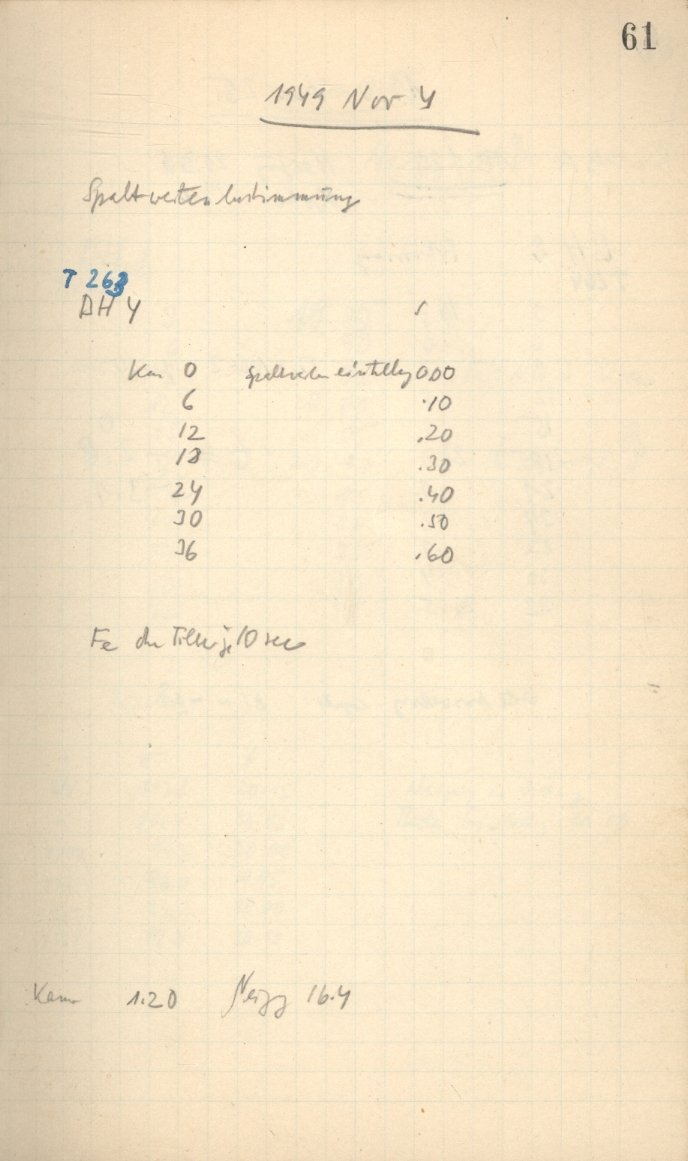 61
1949 Nov 4
Spaltweitenbestimmung
T 263
DH 4
Kam 0 Spaltweiten einstellg 0,00
6 .10
12 .20
18 .30
24 .40
30 .50
36 .60
Fe je 10 sec
Kam 1.20 Neigg 16.4